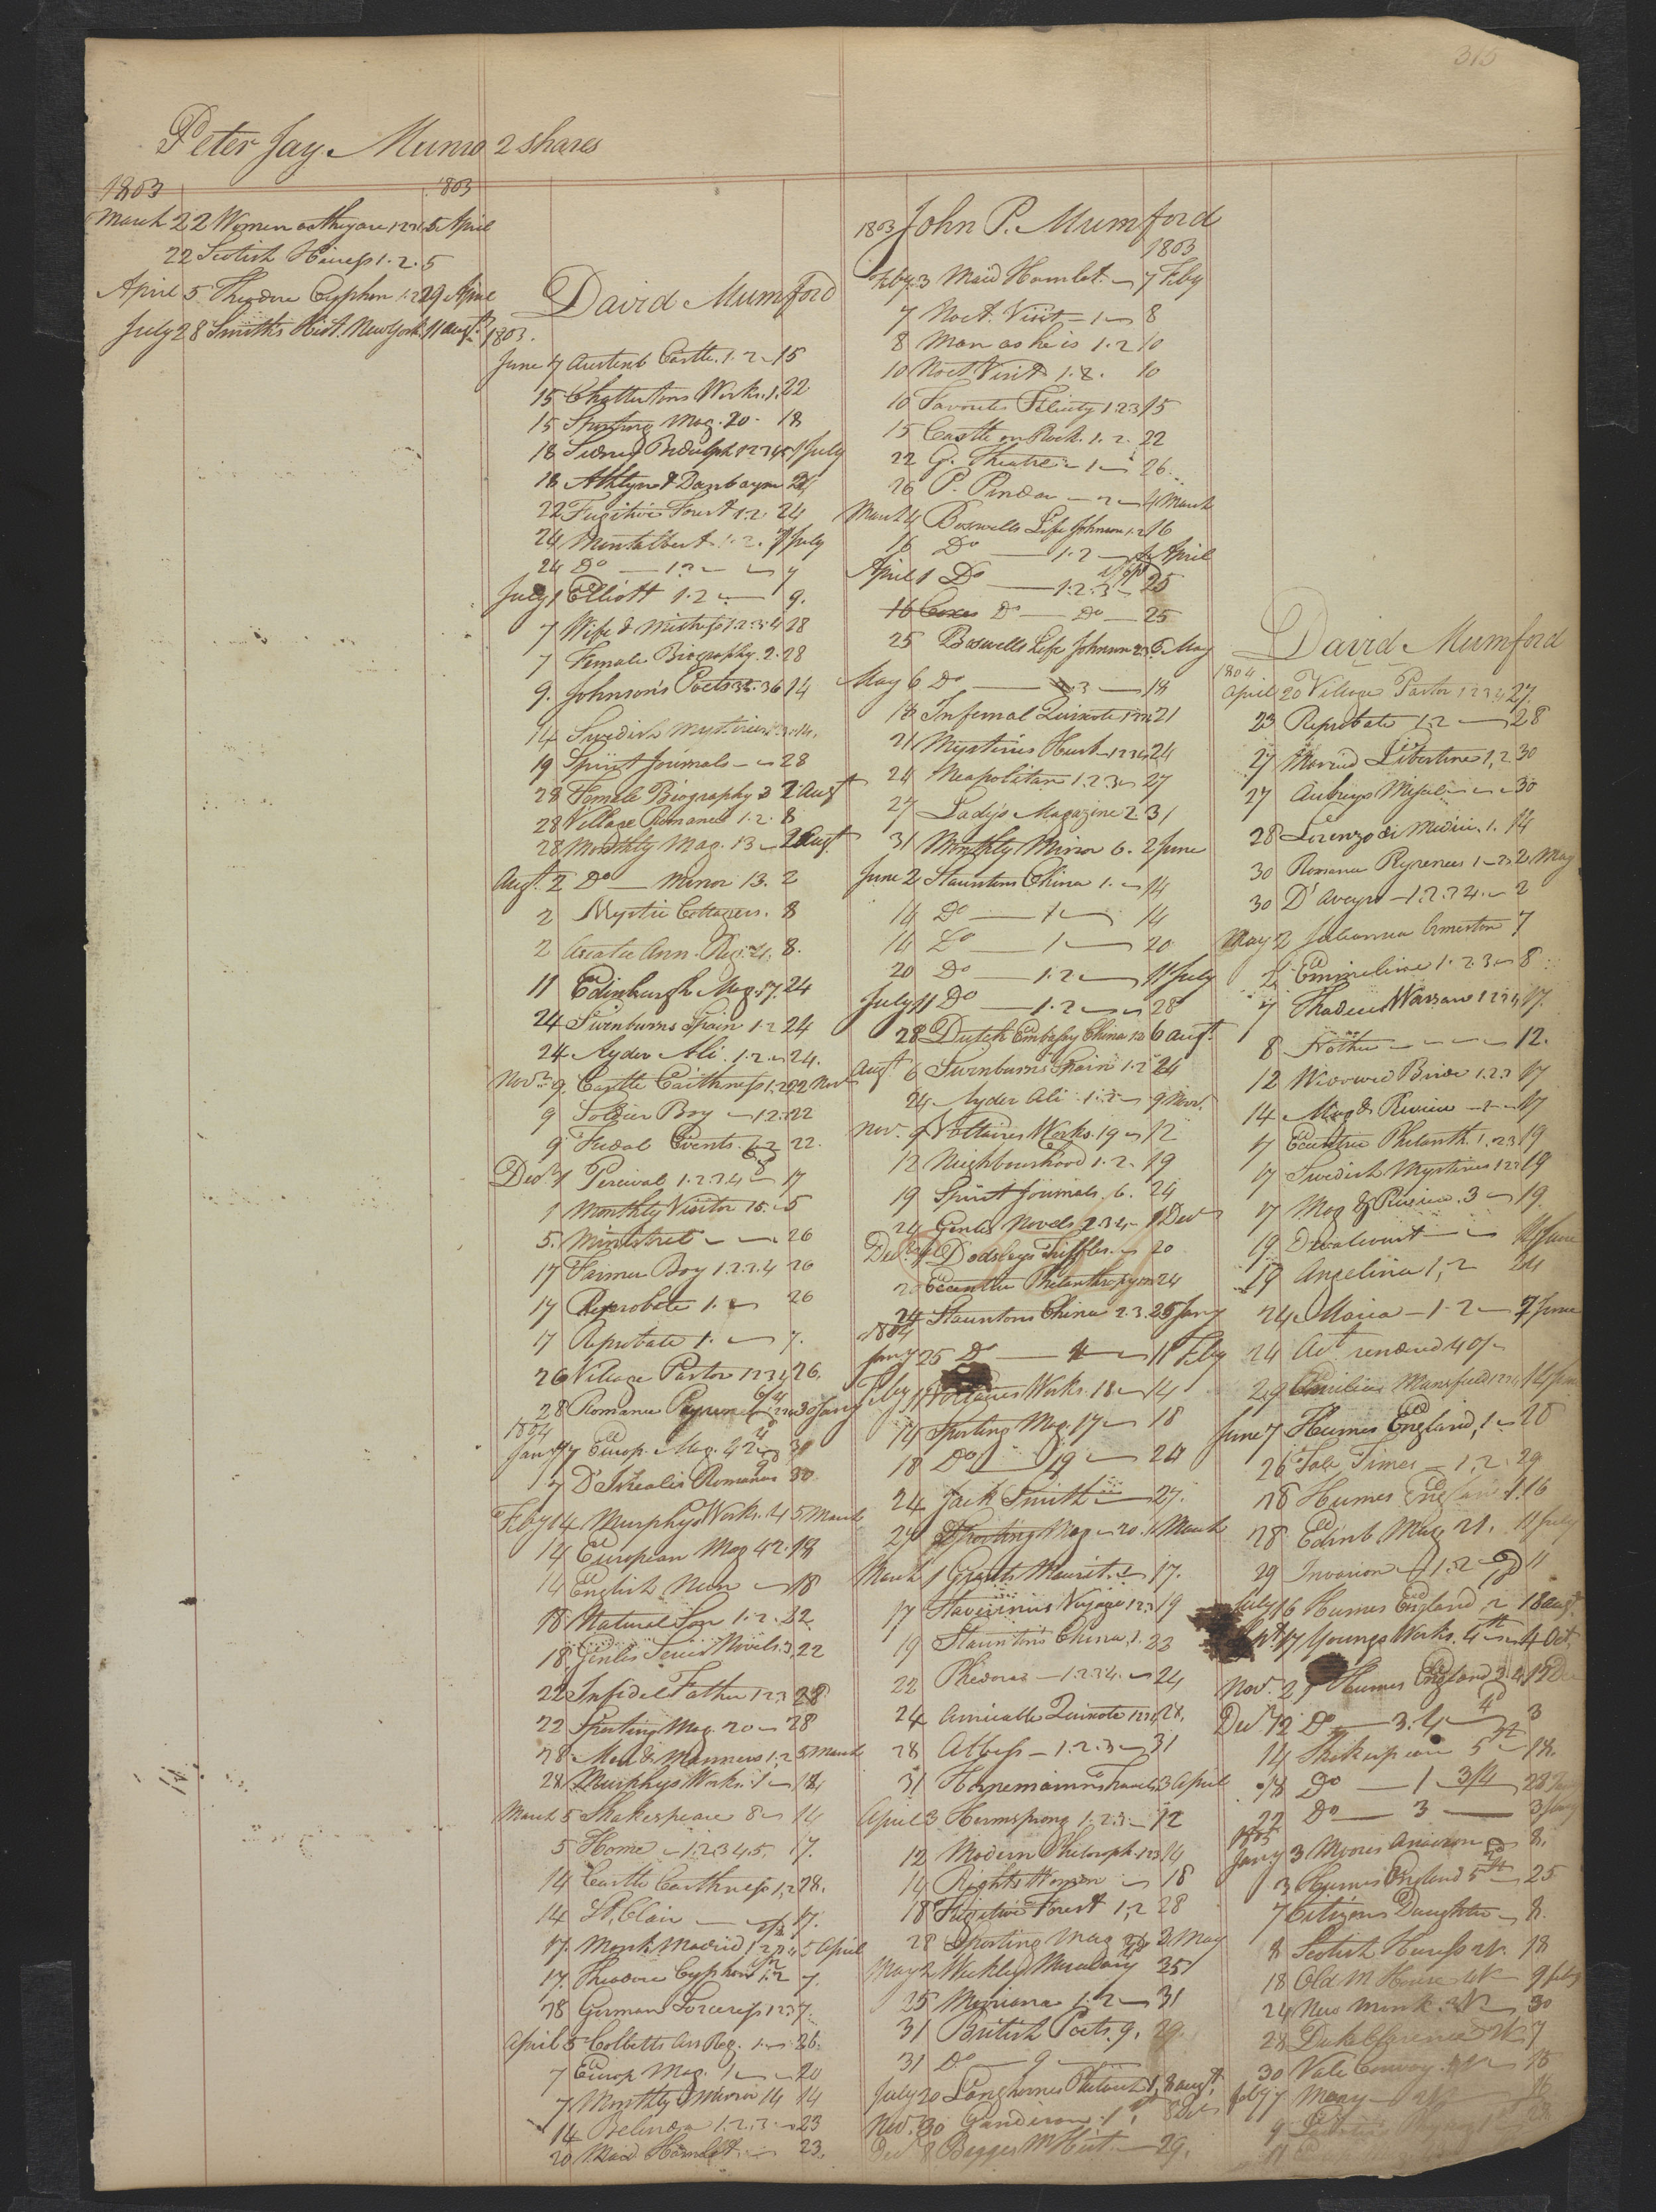 315
Peter Jay Munro 2 shares
1803 1803
March 22 Women as they are 1 2 5 April
22 Scotish Heiress 1. 2. 5
April 5 Theodore Cyphon 1. 2 29 April
July 28 Smith's Hist. New York 11 Augt.
David Mumford
1803.
June 7 Austenb Castle. 1. 2 15
15 Chattertons Works. 1. 22
15 Sporting Mag. 20 18
18 Sidney Bidulph 1 2 3 4 5 1 July
18 Athlyn & Dunbayne 24
22 Fugitive Forest 1. 2. 24
24 Montalbert 1. 2. 7 July
24 Do 1. 2 7
July 1 Elliott 1. 2 9.
7 Wife & Mistress 1. 2. 3. 4 28
7 Female Biography. 2. 28
9. Johnson's Poets 35. 36 14
14 Swedish Mysteries
19 Spirit Journals 28
28 Female Biography 3 2 Augt
28 Village Romance 1. 2. 8
28 Monthly Mag. 13 2 Augt
Augt. 2 Do Mirror 13. 2
2 Mystic Cottagers. 8
2 Asiatic Ann. Reg. 8.
11 Edinburgh Mag. 17. 24
24 Swinburns Spain 1. 2 24
24 Ayder Ali. 1. 2. 24.
Novr. 9. Castle Caithness 1. 2 22 Novr
9 Soldier Boy 1. 2. 3 22
9 Feudal Events. 1. 2 22.
Decr 1 Percival 1. 2. 3. 4 17
1 Monthly Visitor 15. 5
5. Minstrel 26
17 Farmer Boy 1. 2. 3. 4 26
17 Reprobate 1. 26
17 Reprobate 1. 7.
26 Village Pastor 1 2 3 4 26.
28 Romance Pyrenees 30 Jany
1804
Jany 7 Europ. Mag. 42 30
7 D'Israelis Romances 30.
Feby 14 Murphys Works. 4 5 March
14 European Mag 42. 18
14 English Nun 18
18 Natural Son 1. 2. 22
18 Genlis Novels. 3. 22
22 Infidel Father 1 2 3 28
22 Sporting Mag. 20 28
28 Men & Manners 1. 2 5 March
28 Murphys Works. 1 14
March 5 Shakespeare 8 14
5 Home 1. 2 3 4 5. 17.
14 Castle Caithness 1, 2 28.
14 St. Clair 17.
17. Monk Madrid 1 2 3 4 5 April
17. Theodore Cyphon 1. 2 7.
28 German Sorceress 1 2 3 7.
April 5 Cobbetts Ann Reg. 1 26.
7 Europ Mag. 1 20
7 Monthly Mirror 14 14
14 Belinda 1. 2. 3 23
20 Maid Hamlet 23.
1803 John P. Mumford
1803
Feby. 3 Maid Hamlet 7 Feby
7 Noct. Visit 1 8
8 Man as he is 1. 2 10
10 Noct Visit 1. 2. 10
10 Favorites Felicity 1. 2 3 15
15 Castle on Rock. 1. 2. 22
22 G. Theatre 1 26
26 P. Pindar 2 4 March
March 4 Boswells Life Johnson 1. 2 16
16 Do 1. 2 1 April
April 1 Do 1. 2. 3 25
16 Do Do 25
25 Boswells Life Johnson 2. 3 6 May
May 6 Do 3 18
18 Infernal Quixote 1 2 3 4 21
21 Mysterious Husb 1 2 3 4 24
24 Neapolitan 1. 2. 3 27
27 Lady's Magazine 2. 31
31 Monthly Mirror 6. 2 June
June 2 Stauntons China 1. 14
14 Do 1 14
14 Do 1 20
20 Do 1. 2 11 July
July 11 Do 1. 2 28
28 Dutch Embassy China 1. 2 6 Augt.
Augt 6 Swinburns Spain 1. 2 24
24 Ayder Ali 1. 2 9 Novr.
Nov. 9 Voltaires Works. 19 12
12 Neighbourhood 1. 2. 19
19 Spirit Journals. 6. 24
24 Genlis Novels 2. 3 4 1 Decr
Decr. 1 Dodsleys Triffles. 20
20 Eccentric Philanthropy 24
24 Stauntons China 2. 3. 25 Jany
1804
Jany 25 Do 11 Feby
Feby 11 Voltaires Works. 18 14
14 Sporting Mag. 17 18
18 Do 19 24
24 Jack Smith 27.
24 Sporting Mag 20. 1 March
March 1 Grants Maurit. 17.
17 Stavorinus Voyage 1 2 3 19
19 Stauntons China, 1. 22
22 Phedora 1. 2 3 4. 24
24 Amicable Quixote 1 2 3 4 28.
28 Abbess 1. 2. 3 31
31 Hornemann's Travels 3 April
April 3 Hermsprong 1. 2. 3 12
12 Modern Philosoph. 1 2 3 14
14 Rights Woman 18
18 Fugitive Forest 1, 2 28
28 Sporting Mag 2 May
May 2 Weekly Museum 25
25 Miriana 1. 2 31
31 British Poets. 9. 29.
31 Do 9
July 20 Langhornes Plutarch 1, 8 Augt.
Nov. 30 Gaudiron. 1 8 Decr
Decr 8 29.
David Mumford
1804
April 20 Village Pastor 1 2 3 4 27
23 Reprobate 1. 2 28
27 Married Libertine 1, 2 30
27 Aubreys 30
28 Lorenzo di Medici. 1. 14
30 Romance Pyrenees 1 2 May
30 D'Aveyro 1. 2. 3 4. 2
May 2 Julianna Ormeston 7
2 Emmeline 1. 2. 3 8
7 Thadeus Warsaw 1 2 3 4 17.
8 Nothia 12.
12 Wiorwic Bride 1. 2. 3 17
14 Mag & Review 17
17 Eccentric Philanth. 1. 2 3 19
17 Swedish Mysteries 1 2 3 19
17 Mag & Review. 3 19.
19 Devalcourt 14 June
19 Angelina 1, 2 24
24 Maria 1. 2 7 June
24 Act rendered 40/
29 Emilia Mansfield 1 2 3 4 14 June
June 7 Humes England, 1 28
26 Tale Times 1, 2. 29
28 Humes England. 1. 16
28 Edinb. Mag 21. 11 July
29 Invasion 1. 2 11
July 16 Humes England, 2 18 Augt.
Sept 17 Youngs Works. 4th 4 Oct.
Nov. 27 Humes England 3. 4 12 Dec
Decr 12 Do 3. 4 3
14 Shakespeare 5th 18.
18 Do 1 3/4 22 Jany
22 Do 3 3 Jany
1805
Jany 3 Moores Anacreon 8.
3 Humes England 5th 25
7 Citizens Daughter 8.
8 Scotish Heiress 2v. 18
18 Old M House 4v 9 Feby
24 New Monk 3v 30
28 Duke Clarence 7
30 Vale Conway 4v 16
Feby 7 Mary 2v 16
9
11